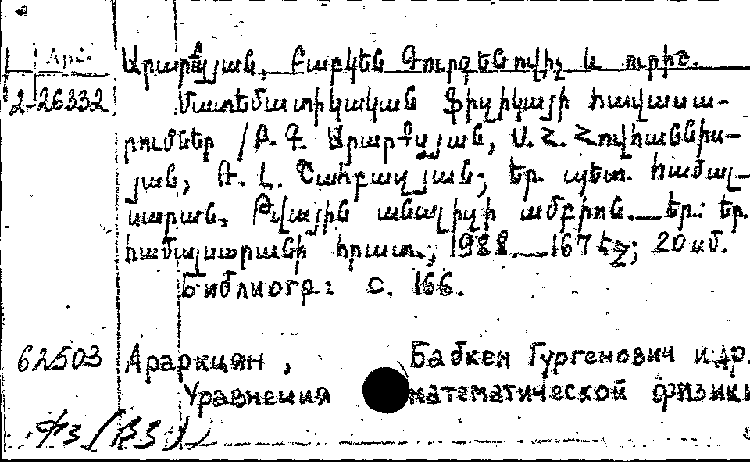 Արարքցյան, Բաբկեն Գուրգենովիչ և ուրիշ.
2-26332 Մատեմատիկական ֆիզիկայի հավասա-
րումներ /Բ. Գ. Արարքցյան, Ս. Հ. Հովհաննիս-
յան, Ռ. Լ. Շահբաղյան; Եր. պետ. համալ-
սարան. Թվային անալիզի ամբիոն. — Եր.: Եր.
համալսարանի հրատ., 1988. — 167 էջ; 20 սմ.
Библиогр: с. 166.
62503 Араркцян, Бабкен Гургенович и др.
Уравнения математической физики